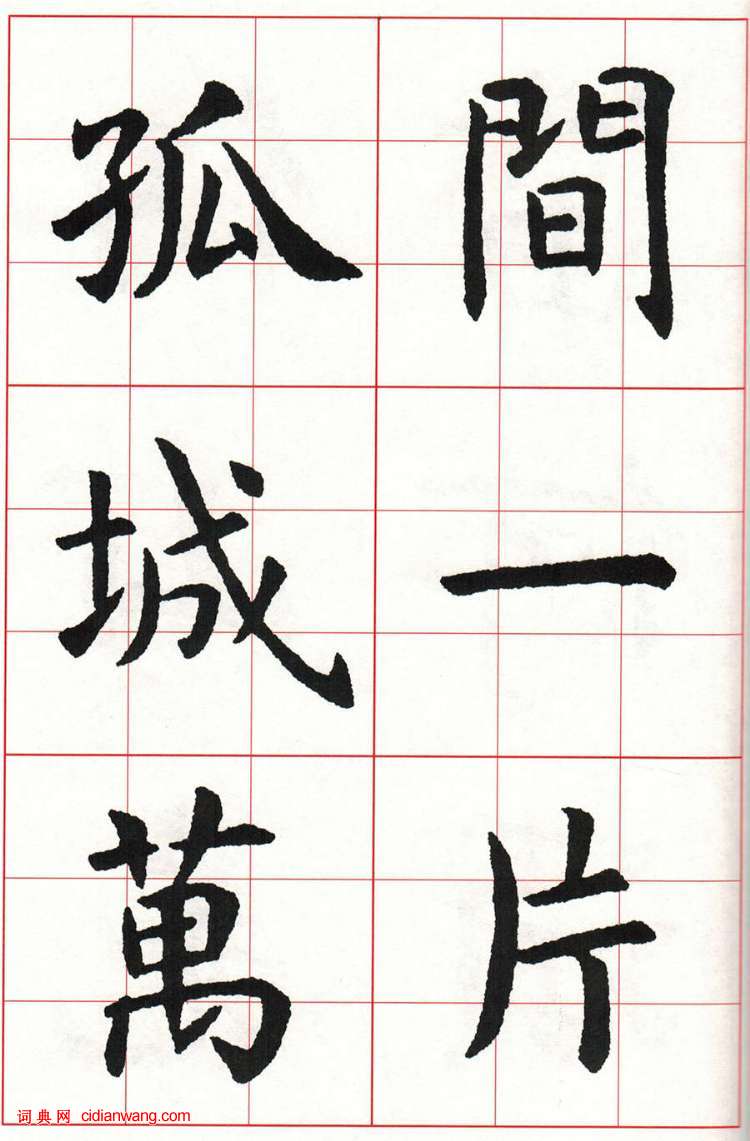 間一片
孤城萬
词典网 cidianwang.com